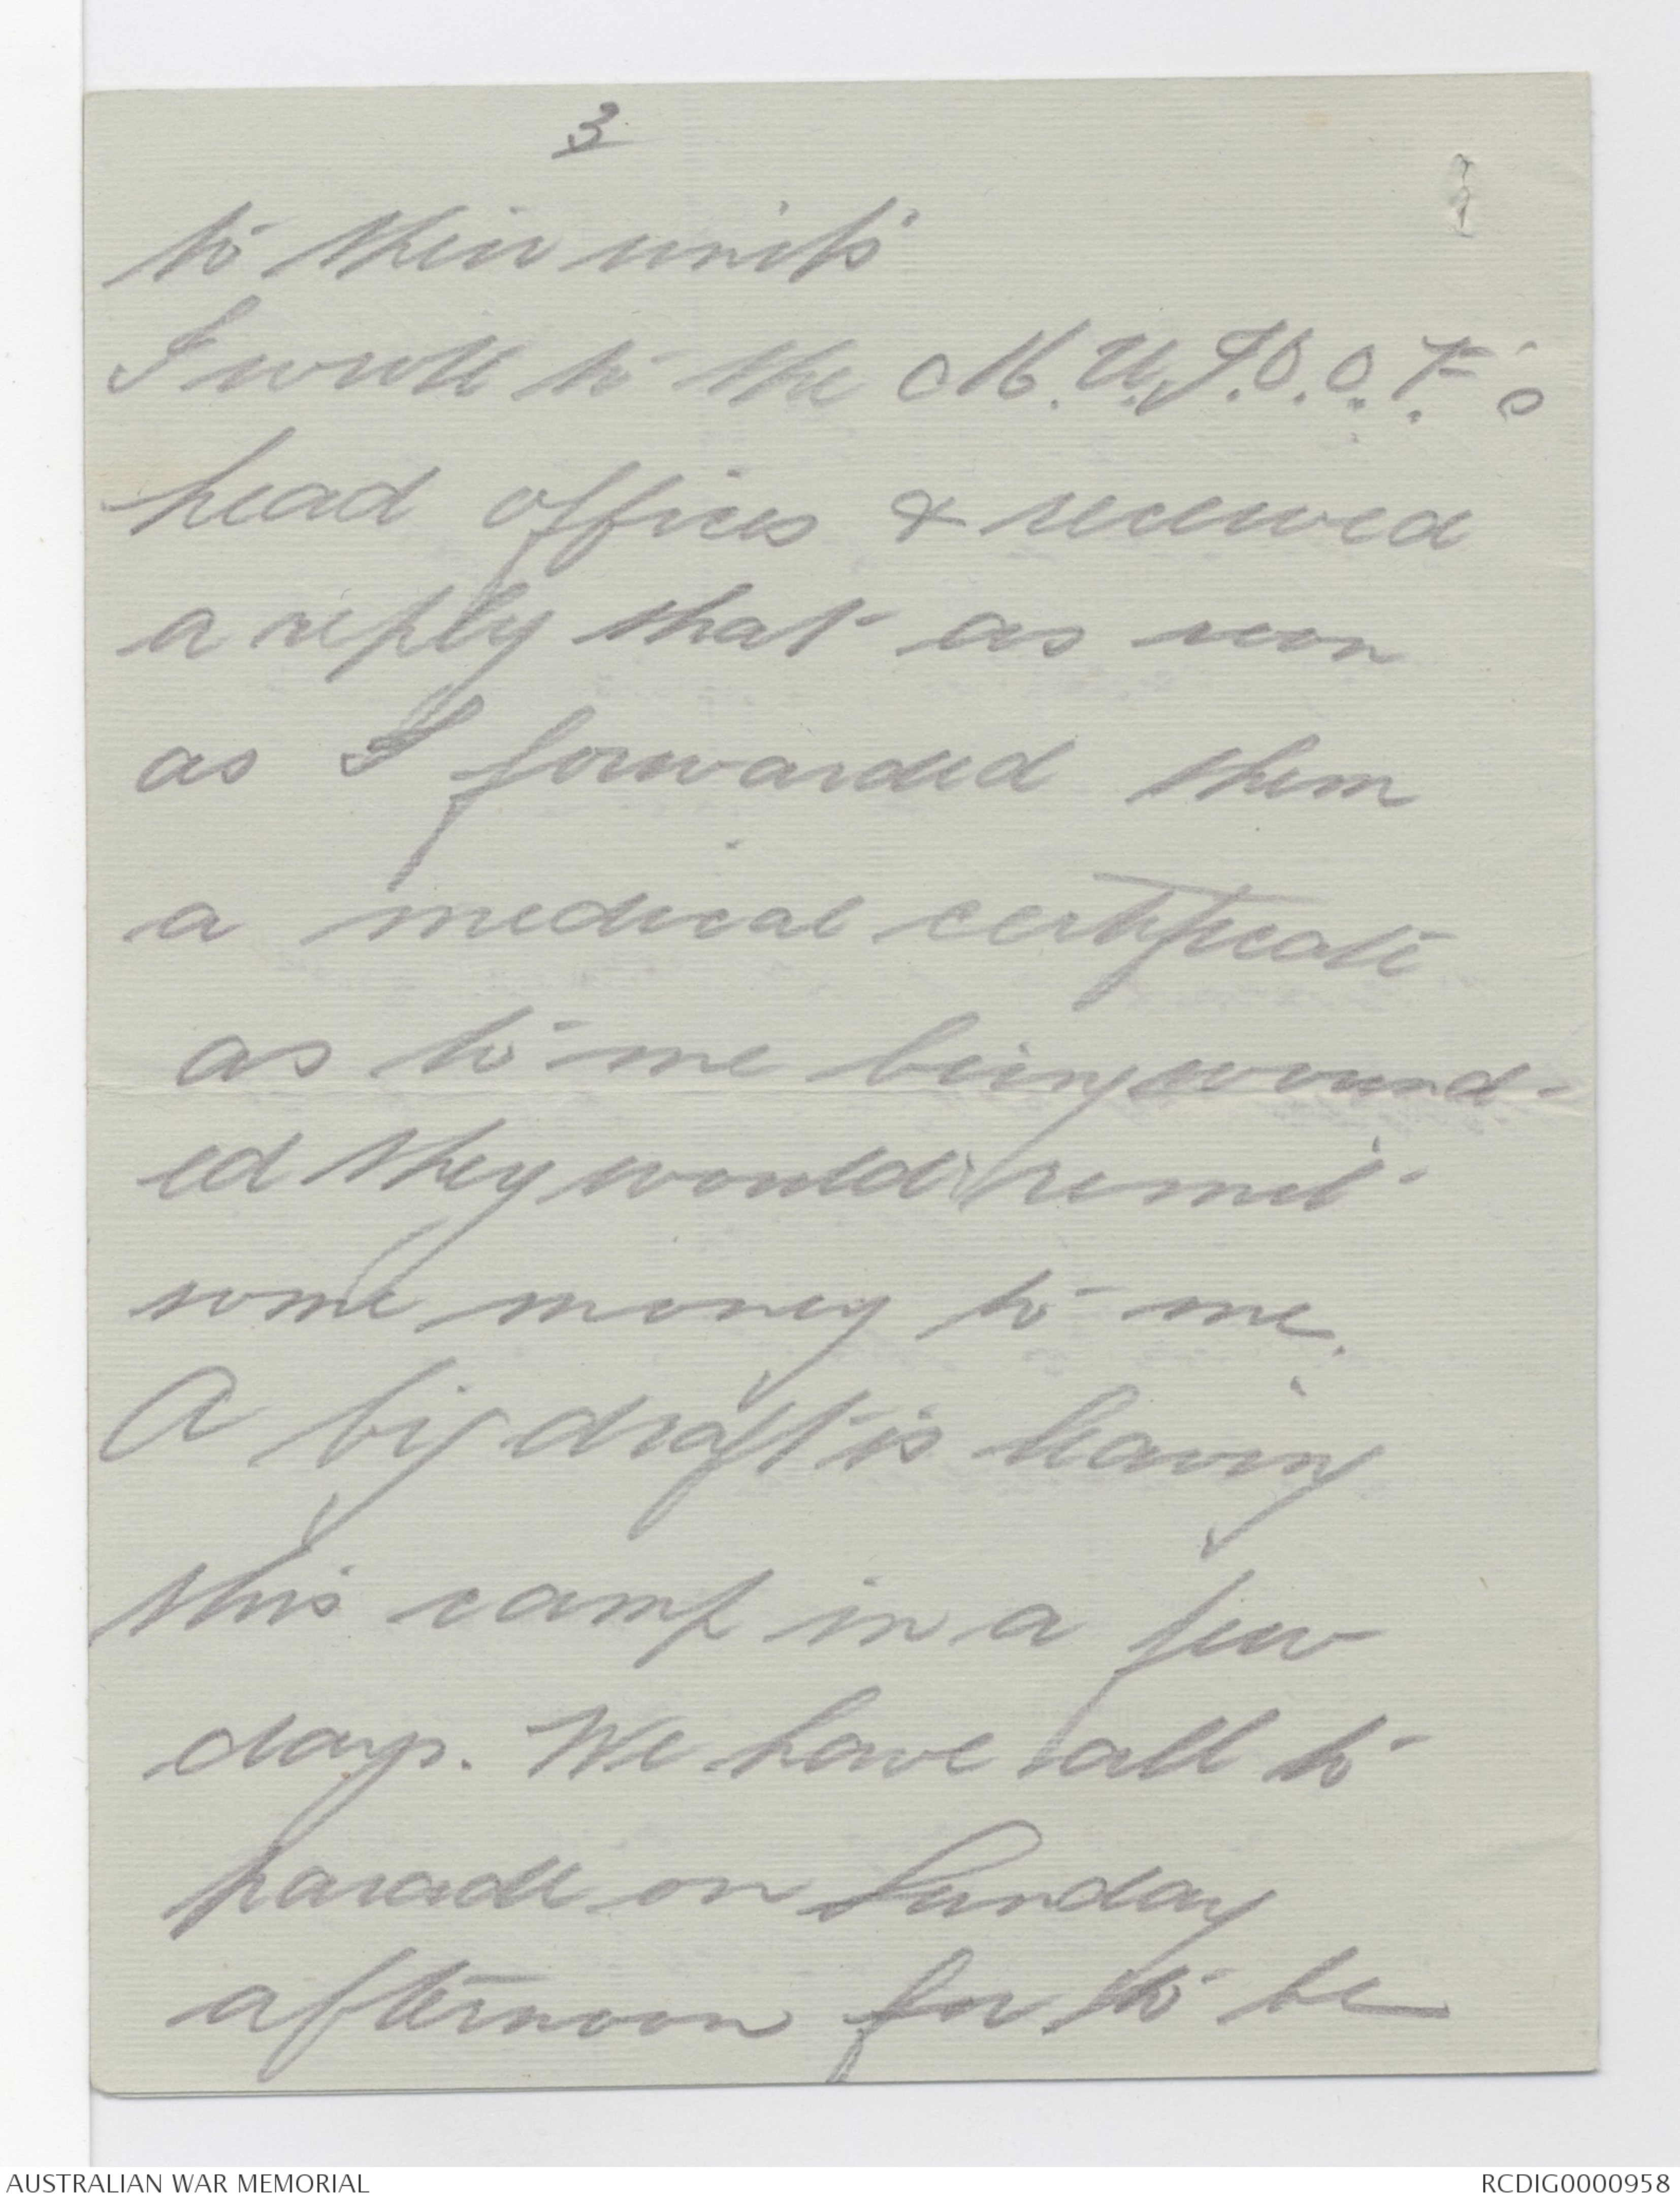 3
to their units
I wrote to the M.U.I.O.O.F.'s
head offices & received
a reply that as soon
as I forwarded them
a medical certificate
as to me being wound-
ed they would remit
some money to me.
A big draft is leaving
this camp in a few
days. We have all to
parade on Sunday
afternoon for to be
AUSTRALIAN WAR MEMORIAL
RCDIG0000958